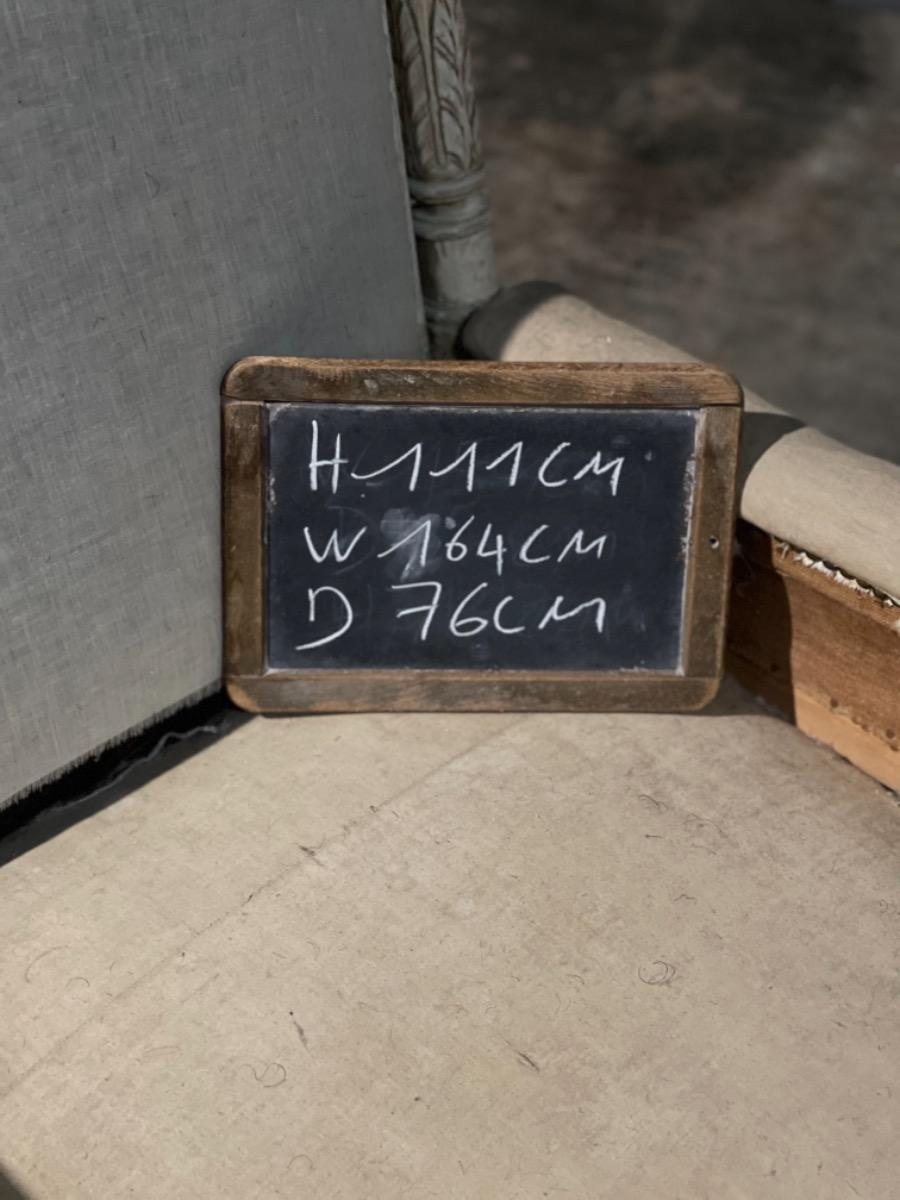 H 111CM
W 164CM
D 76CM